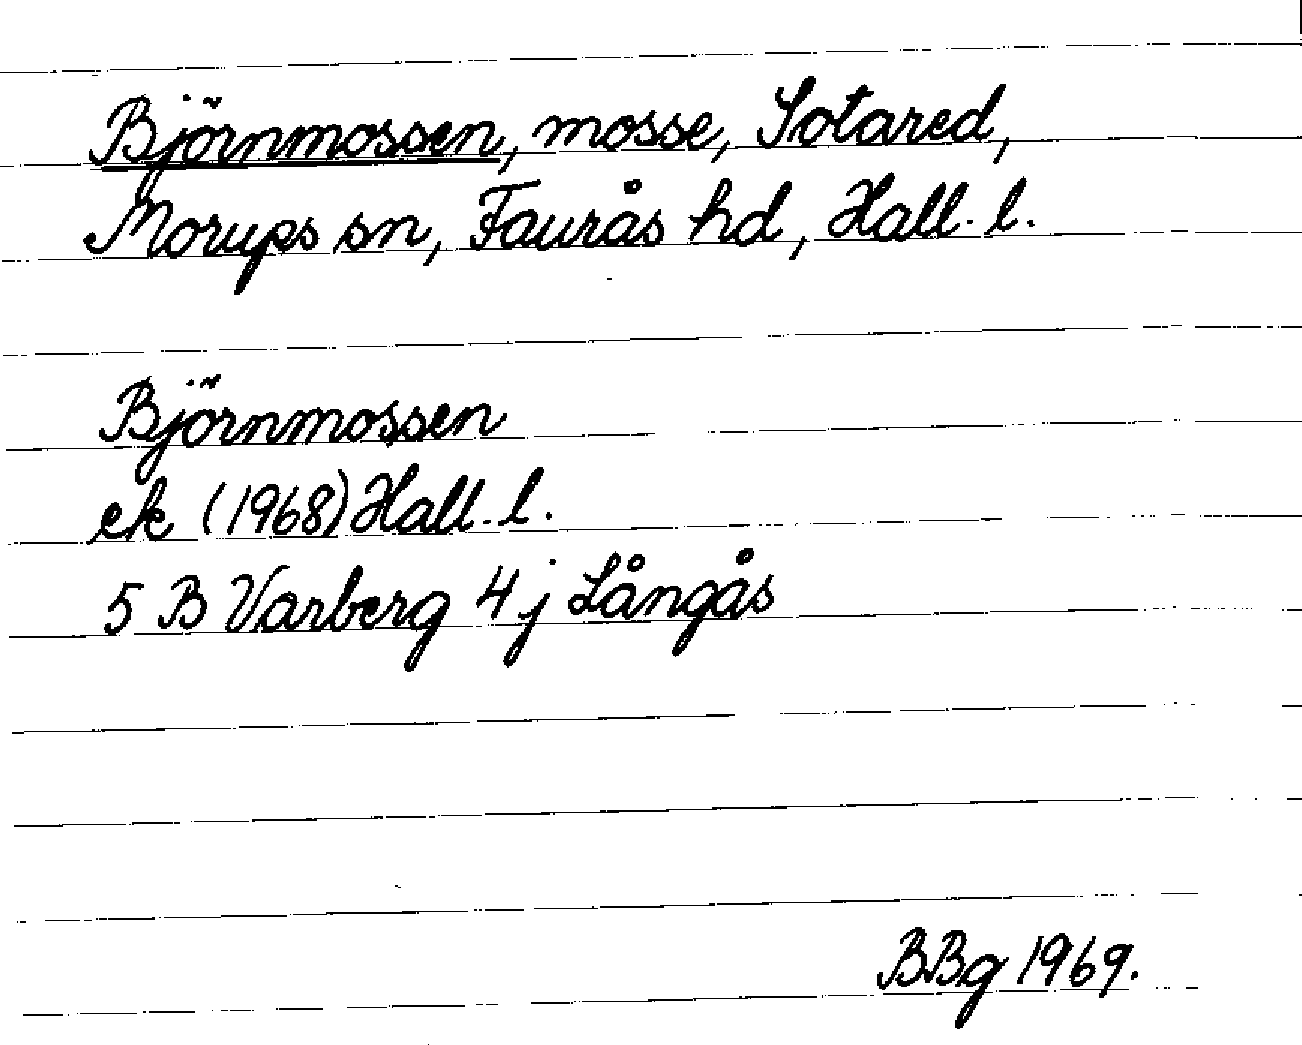 Björnmossen, mosse, Sotared,
Morups sn, Faurås hd, Hall. l.
Björnmossen
ek (1968) Hall. l.
5 B Varberg 4 j Långås
BBg 1969.